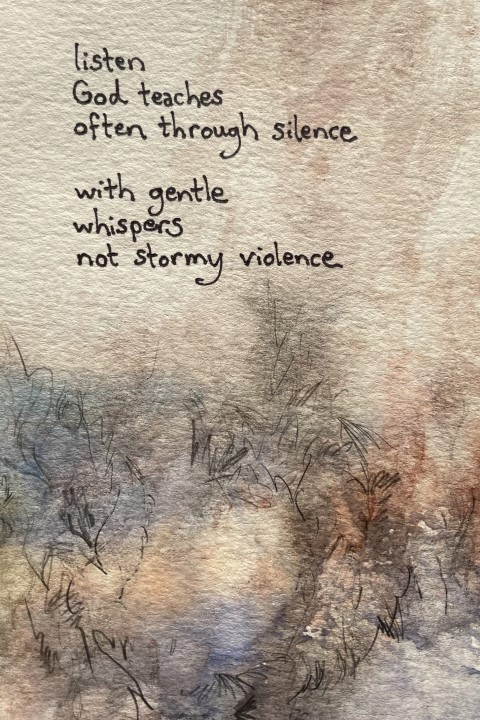 listen
God teaches
often through silence
with gentle
whispers
not stormy violence